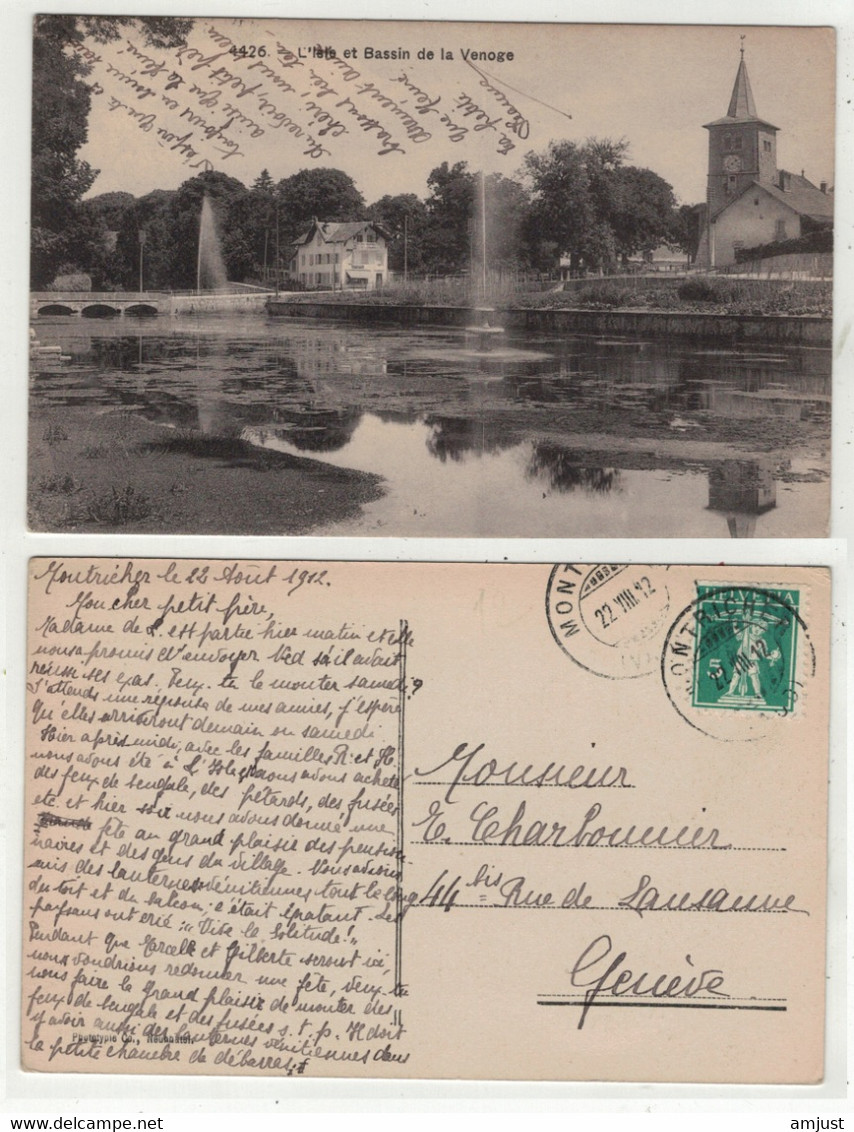 4426. L'Isle et Bassin de la Venoge
Montricher le 22 Août 1912.
Mon cher petit frère,
Madame de L. est partie hier matin et elle
nous a promis d'envoyer Ved s'il avait
réussi ses exas. Peux-tu le monter samedi?
J'attends une réponse de mes amies, j'espère
qu'elles arriveront demain ou samedi
Hier après midi, avec les familles R. et H.
nous avons été à L'Isle, nous avons acheté
des feux de bengale, des pétards, des fusées
etc. et hier soir nous avons donné une
fête au grand plaisir des pension-
naires et des gens du village. Nous avions
mis des lanternes vénitiennes tout le long
du toit et du balcon, c'était épatant. Les
paysans ont crié: "Vive la Solitude!"
Pendant que Marcelle et Gilberte seront ici,
nous voudrions redonner une fête, veux-tu
nous faire le grand plaisir de monter des
feux de bengale et des fusées s. t. p. Il doit
y avoir aussi des lanternes vénitiennes dans
la petite chambre de débarras
Phototypie Co., Neuchâtel.
Monsieur
E. Charbonnier
44 bis Rue de Lausanne
Genève
MONTRICHER
22.VIII.12
(VAUD)
HELVETIA
5
amjust